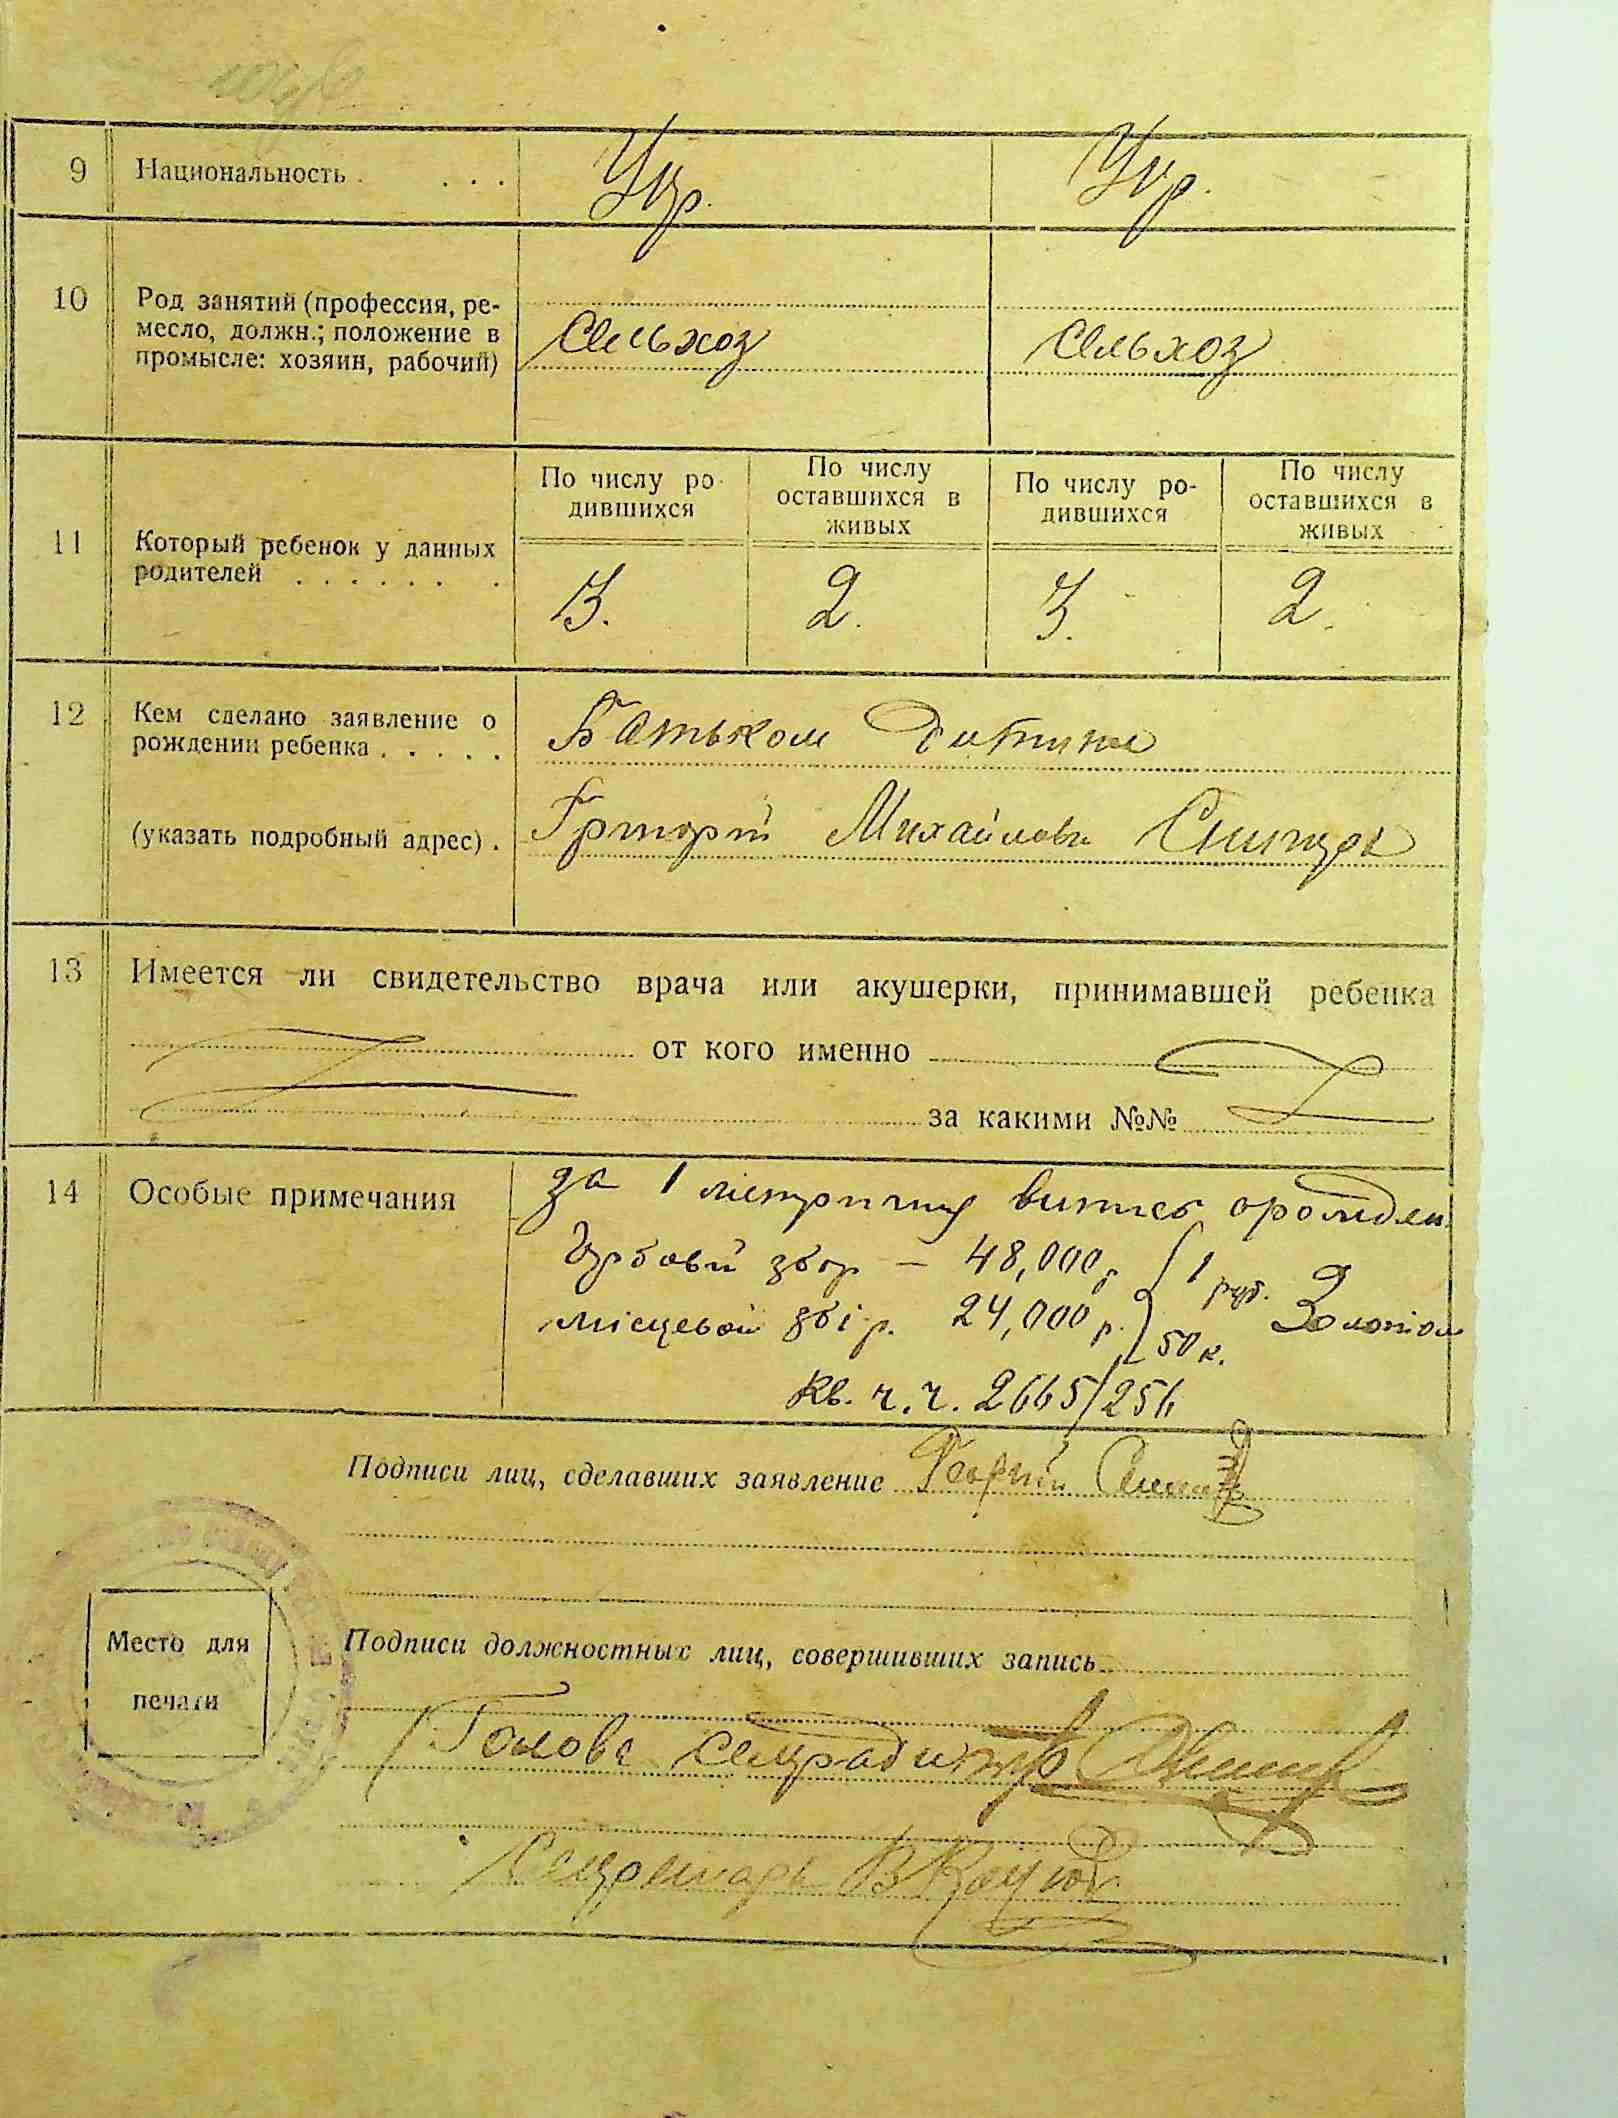 9 Национальность . . . . Укр. Укр.
10 Род занятий (профессия, ре-
месло, должн.; положение в
промысле: хозяин, рабочий)
Сельхоз Сельхоз
11 Который ребенок у данных
родителей . . . . . . .
По числу ро-
дившихся
По числу
оставшихся в
живых
По числу ро-
дившихся
По числу
оставшихся в
живых
3. 2. 3. 2.
12 Кем сделано заявление о
рождении ребенка . . . . .
Батьком дитини
(указать подробный адрес) .
Григорій Михайлови
13 Имеется ли свидетельство врача или акушерки, принимавшей ребенка
от кого именно
за какими №№
14 Особые примечания
За 1 метричну
збор — 48,000 р. 1 руб.
місцевой збір. 24,000 р. 50 к. Золотом
Кв. ч. ч. 2665/256
Подписи лиц, сделавших заявление
Место для
печати
Подписи должностных лиц, совершивших запись
Голова сельради
Секретарь